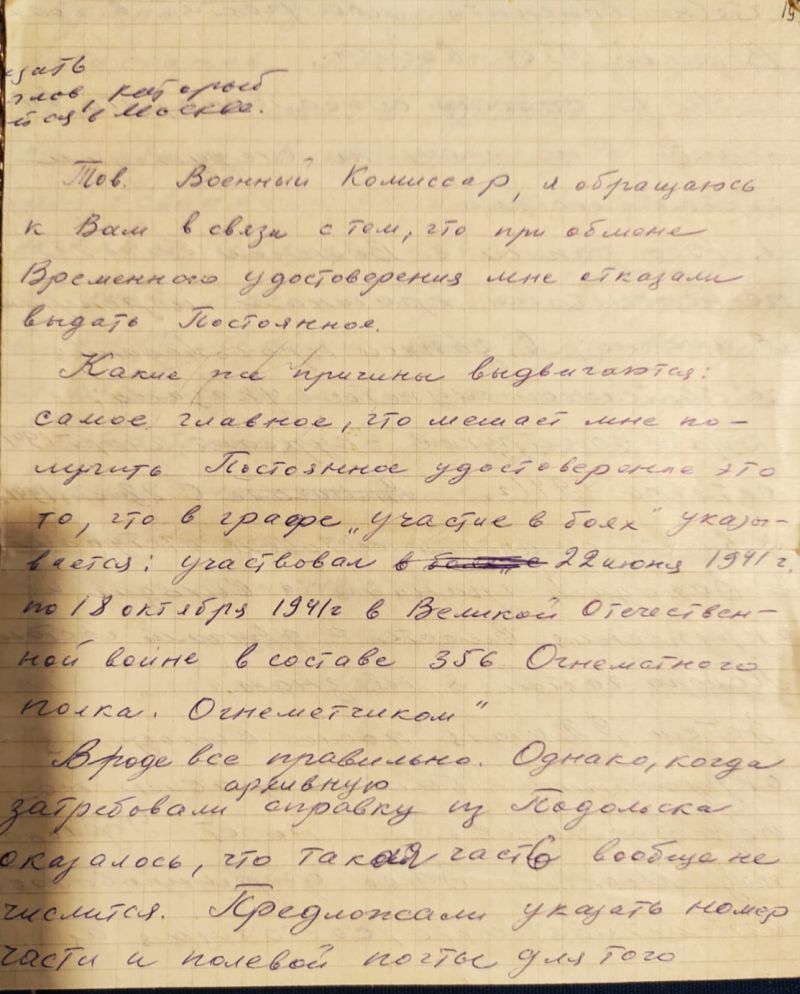 19
азать
глов, который
тся в Москве.
Тов. Военный Комиссар, я обращаюсь
к Вам в связи с тем, что при обмене
Временного удостоверения мне отказали
выдать Постоянное.
Какие же причины выдвигаются:
самое главное, что мешает мне по-
лучить Постоянное удостоверение это
то, что в графе „участие в боях" указы-
вается: участвовал 22 июня 1941 г.
по 18 октября 1941г в Великой Отечествен-
ной войне в составе 356 Огнеметного
полка. Огнеметчиком"
Вроде все правильно. Однако, когда
архивную
затребовали справку из Подольска
оказалось, что такая часть вообще не
числится. Предложили указать номер
части и полевой почты для того